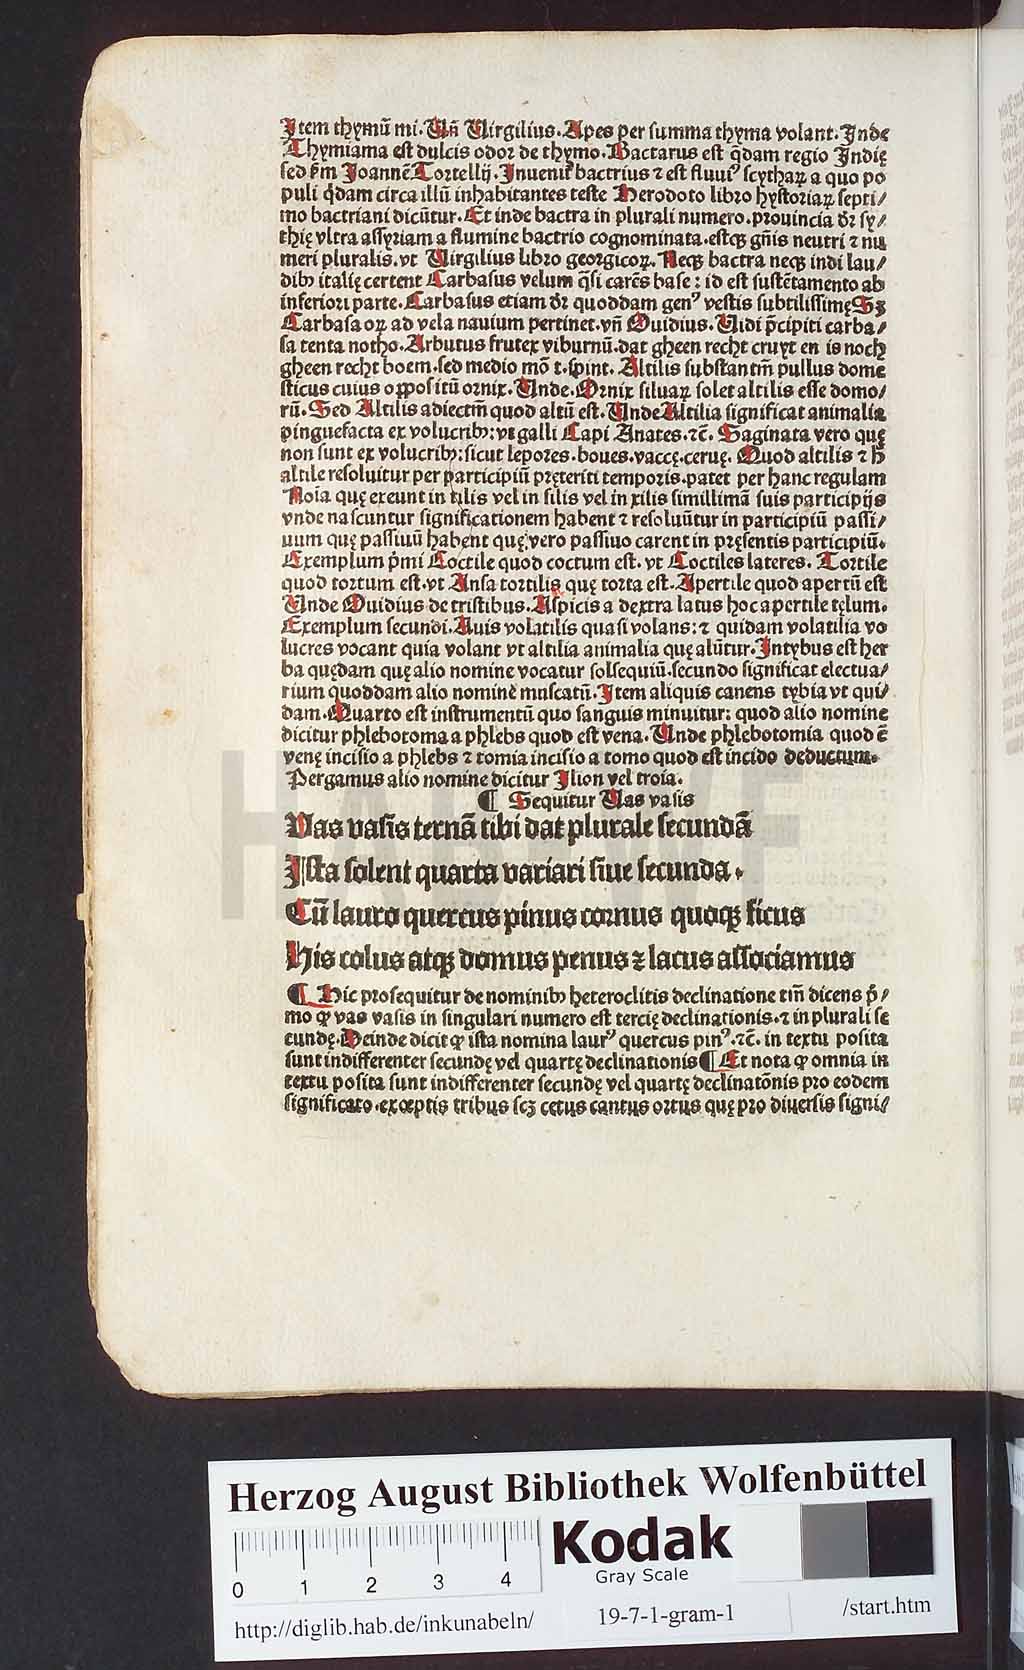 Item thymū mi. Uñ Uirgilius. Apes per summa thyma volant. Inde
Thymiama est dulcis odor de thymo. Bactarus est q̇dam regio Indię
sed ẜm Joannē Tortellij. Inuenit᷑ bactrius ⁊ est fluuiꝰ scythaꝝ a quo po
puli q̇dam circa illū inhabitantes teste Herodoto libro hystoriaꝝ septi/
mo bactriani dicūtur. Et inde bactra in plurali numero. prouincia dr̄ sy/
thię vltra assyriam a flumine bactrio cognominata. estqꝫ gn̄is neutri ⁊ nu
meri pluralis. vt Uirgilius libro georgicoꝝ. Necqꝫ bactra neqꝫ indi lau/
dibꝰ italię certent Carbasus velum q̄si carēs base: id est sustētamento ab
inferiori parte. Carbasus etiam dr̄ quoddam genꝰ vestis subtilissimę Sꝫ
Carbasaoꝝ ad vela nauium pertinet. vñ Ouidius. Uidi p̄cipiti carba/
sa tenta notho. Arbutus frutex viburnū. dat gheen recht cruyt en is noch
gheen recht boem. sed medio mō t. spint. Altilis substantm̄ pullus dome
sticus cuius oppositū ornix. Unde. Ornix siluaꝝ solet altilis esse domo/
rū. Sed Altilis adiectm̄ quod altū est. Unde Altilia significat animalia
pinguefacta ex volucribꝰ: vt galli Capi Anates. ⁊c̄. Saginata vero quę
non sunt ex volucribꝰ: sicut lepores. boues. vaccę. ceruę. Quod altilis ⁊ h̄
altile resoluitur per participiū pręteriti temporis. patet per hanc regulam
Noīa quę exeunt in tilis vel in silis vel in xilis simillimā suis participijs
vnde nascuntur significationem habent ⁊ resoluūtur in participiū passi/
uum quę passiuū habent quę vero passiuo carent in pręsentis participiū.
Exemplum p̄mi Coctile quod coctum est. vt Coctiles lateres. Tortile
quod tortum est. vt Ansa tortilis quę torta est. Apertile quod apertū est
Unde Ouidius de tristibus. Aspicis a dextra latus hoc apertile tęlum.
Exemplum secundi. Auis volatilis quasi volans: ⁊ quidam volatilia vo
lucres vocant quia volant vt altilia animalia quę alūtur. Intybus est her
ba quędam quę alio nomine vocatur solsequiū. secundo significat electua/
rium quoddam alio nomine muscatū. Item aliquis canens tybia vt qui/
dam. Quarto est instrumentū quo sanguis minuitur: quod alio nomine
dicitur phlebotoma a phlebs quod est vena. Unde phlebotomia quod ē
venę incisio a phlebs ⁊ tomia incisio a tomo quod est incido deductum.
Pergamus alio nomine dicitur Ilion vel troia.
¶ Sequitur Uas vasis
Uas vasis ternā tibi dat plurale secundā
Ista solent quarta variari siue secunda.
Cū lauro quercus pinus cornus quoqꝫ ficus
His colus atqꝫ domus penus ⁊ lacus associamus
¶ Hic prosequitur de nominibꝰ heteroclitis declinatione tm̄ dicens p̄/
mo ꝙ vas vasis in singulari numero est tercię declinationis. ⁊ in plurali se
cundę. Deinde dicit ꝙ ista nomina laurꝰ quercus pinꝰ. ⁊c̄. in textu posita
sunt indifferenter secundę vel quartę declinationis ¶ Et nota ꝙ omnia in
textu posita sunt indifferenter secundę vel quartę declinatōnis pro eodem
significato. exceptis tribus scꝫ cetus cantus ortus quę pro diuersis signi/
HAB WF
Herzog August Bibliothek Wolfenbüttel
0 1 2 3 4
Kodak
Gray Scale
http://diglib.hab.de/inkunabeln/
19-7-1-gram-1
/start.htm